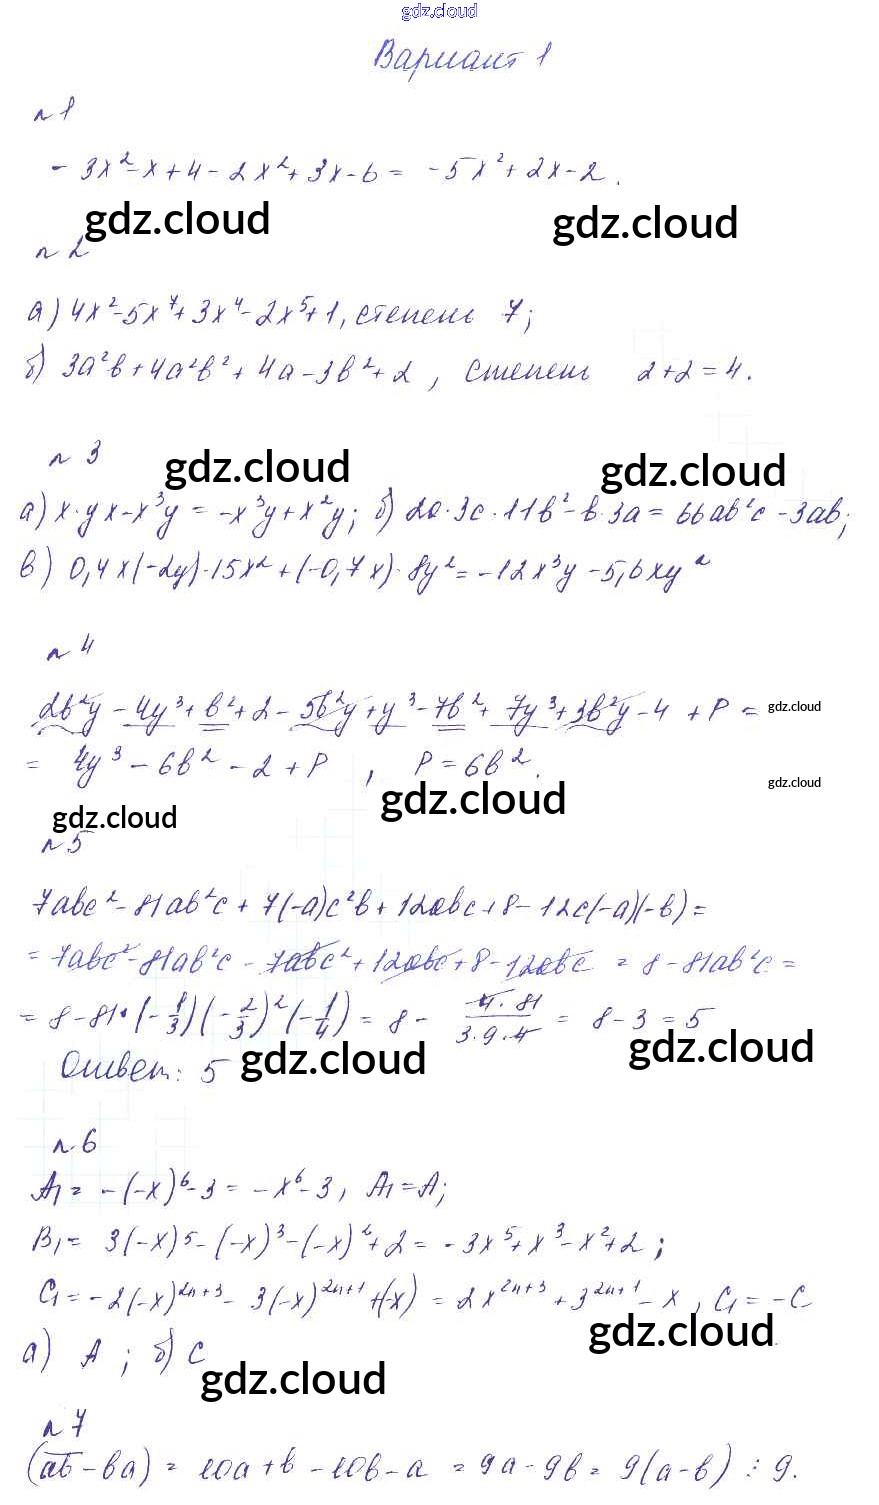 gdz.cloud
Вариант 1
n 1
- 3x² - x + 4 - 2x² + 3x - 6 = -5x² + 2x - 2.
gdz.cloud gdz.cloud
n 2
а) 4x² - 5x⁷ + 3x⁴ - 2x⁵ + 1, степень 7;
б) 3a²b + 4a²b² + 4a - 3b² + 2, степень 2+2=4.
n 3
gdz.cloud gdz.cloud
а) x·yx - x³y = -x³y + x²y; б) 2a·3c·11b² - b·3a = 66ab²c - 3ab;
в) 0,4x(-2y)·15x² + (-0,7x)·8y² = -12x³y - 5,6xy²
n 4
2b²y - 4y³ + b² + 2 - 5b²y + y³ - 7b² + 7y³ + 3b²y - 4 + P = gdz.cloud
= 4y³ - 6b² - 2 + P, P = 6b². gdz.cloud
gdz.cloud gdz.cloud
n 5
7abc² - 81ab²c + 7(-a)c²b + 12abc + 8 - 12c(-a)(-b) =
= 7abc² - 81ab²c - 7abc² + 12abc + 8 - 12abc = 8 - 81ab²c =
= 8 - 81·(-1/3)(-2/3)²(-1/4) = 8 - 4·81/3·9·4 = 8 - 3 = 5
Ответ: 5 gdz.cloud gdz.cloud
n 6
A₁ = -(-x)⁶ - 3 = -x⁶ - 3, A₁ = A;
B₁ = 3(-x)5 - (-x)³ - (-x)² + 2 = -3x⁵ + x³ - x² + 2;
C₁ = -2(-x)²ⁿ⁺³ - 3(-x)²ⁿ⁺¹ + (-x) = 2x²ⁿ⁺³ + 3²ⁿ⁺¹ - x, C₁ = -C
gdz.cloud
а) A; б) C
gdz.cloud
n 7
(ab - ba) = 10a + b - 10b - a = 9a - 9b = 9(a - b) ⋮ 9.